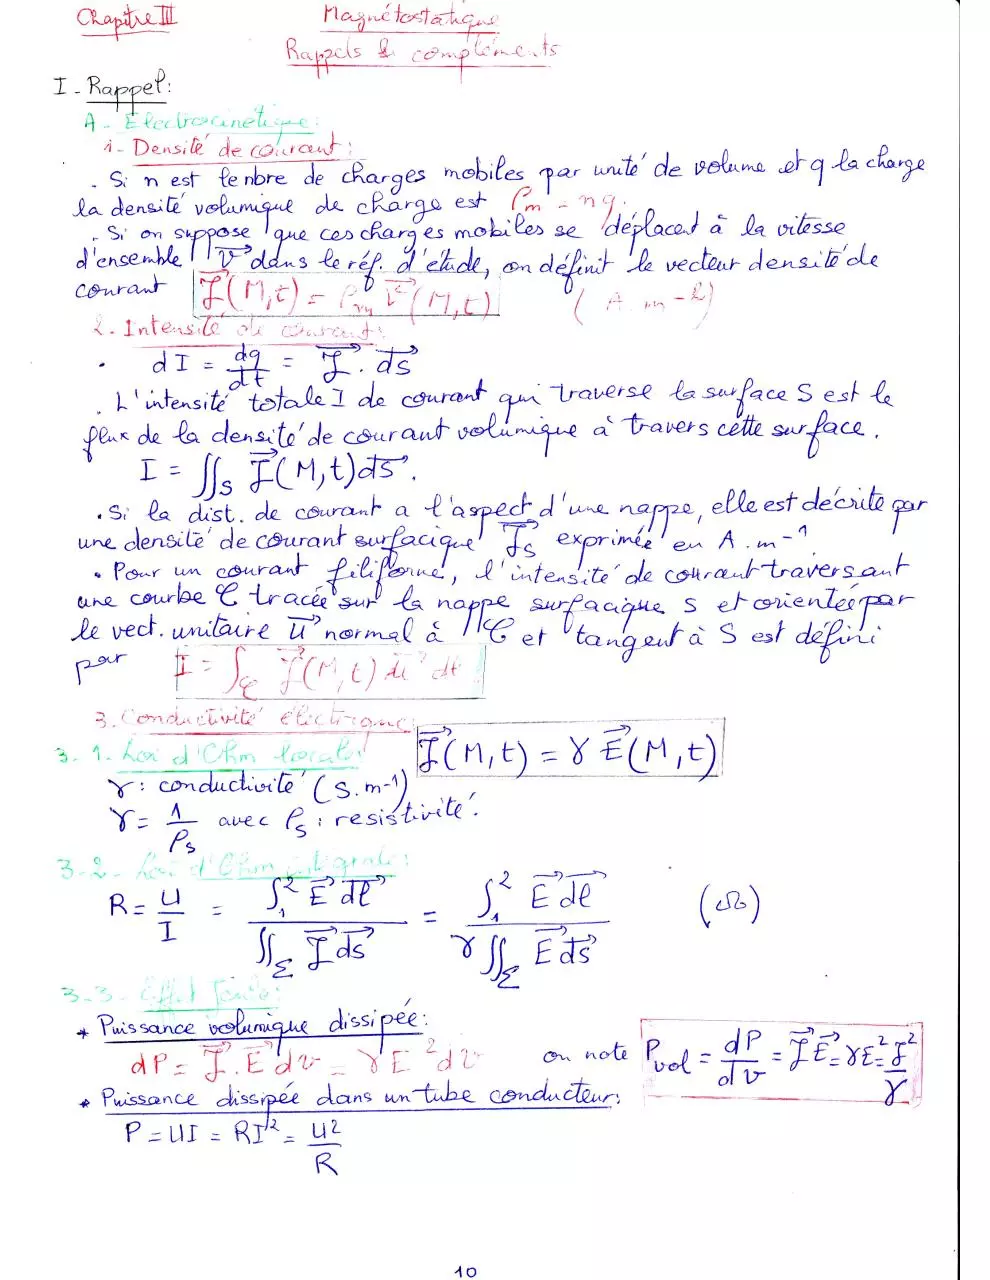 Chapitre III
Magnétostatique
Rappels & compléments
I - Rappel:
A - Electrocinétique:
1- Densité de courant:
. Si n est le nbre de charges mobiles par unité de volume et q la charge
la densité volumique de charge est ρm = nq.
. Si on suppose que ces charges mobiles se déplacent à la vitesse
d'ensemble v⃗ dans le réf. d'étude, on définit le vecteur densité de
courant J⃗(M,t) = ρm v⃗(M,t) (A.m-2)
2. Intensité de courant:
. dI = dq/dt = J⃗ . ds⃗
. L'intensité totale I de courant qui traverse la surface S est le
flux de la densité de courant volumique à travers cette surface.
I = ∬S J⃗(M,t) ds⃗.
. Si la dist. de courant a l'aspect d'une nappe, elle est décrite par
une densité de courant surfacique J⃗s exprimée en A.m-1.
. Pour un courant filiforme, l'intensité de courant traversant
une courbe C tracée sur la nappe surfacique s et orientée par
le vect. unitaire u⃗ normal à C et tangent à S est défini
par I = ∫C J⃗(M,t) u⃗ dl.
3. Conductivité électrique:
3. 1. Loi d'Ohm locale: J⃗(M,t) = γ E⃗(M,t)
γ: conductivité (S.m-1)
γ = 1/ρs avec ρs: resistivité.
3-2- Loi d'Ohm intégrale:
R = U/I = ∫1^2 E⃗ dl⃗ / ∬Σ J⃗ ds⃗ = ∫1^2 E⃗ dl⃗ / γ ∬Σ E⃗ ds⃗ (Ω)
3-3- Effet Joule:
* Puissance volumique dissipée:
dP = J⃗.E⃗ dv = γE²dv on note Pvol = dP/dv = J⃗E⃗ = γE² = J²/γ
* Puissance dissipée dans un tube conducteur:
P = UI = RI² = U²/R
10